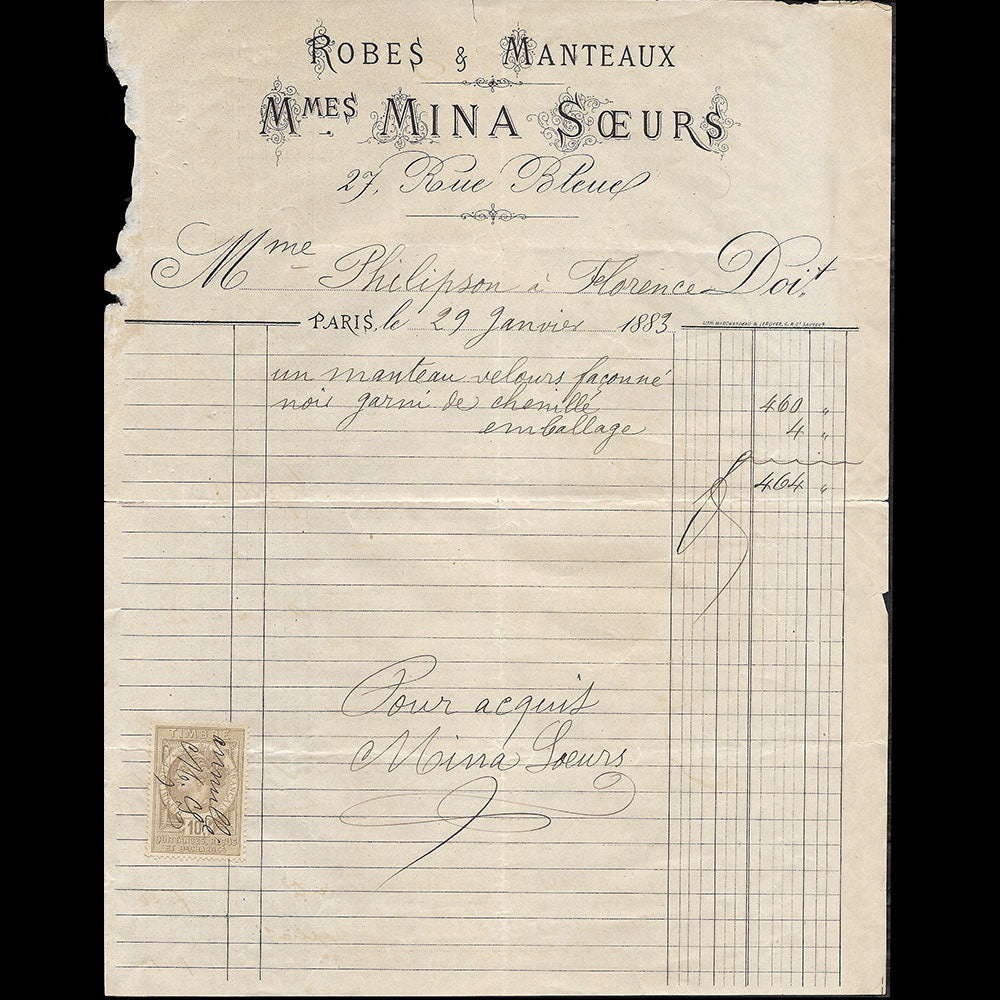 ROBES & MANTEAUX
MMES MINA SŒURS
27, Rue Bleue
Mme Philipson à Florence Doit,
PARIS, le 29 Janvier 1883
un manteau velours façonné
noir garni de chenille 460 "
emballage 4 "
464 "
Pour acquit
Mina Soeurs
TIMBRE
10
QUITTANCES, REÇUS
ET DECHARGES